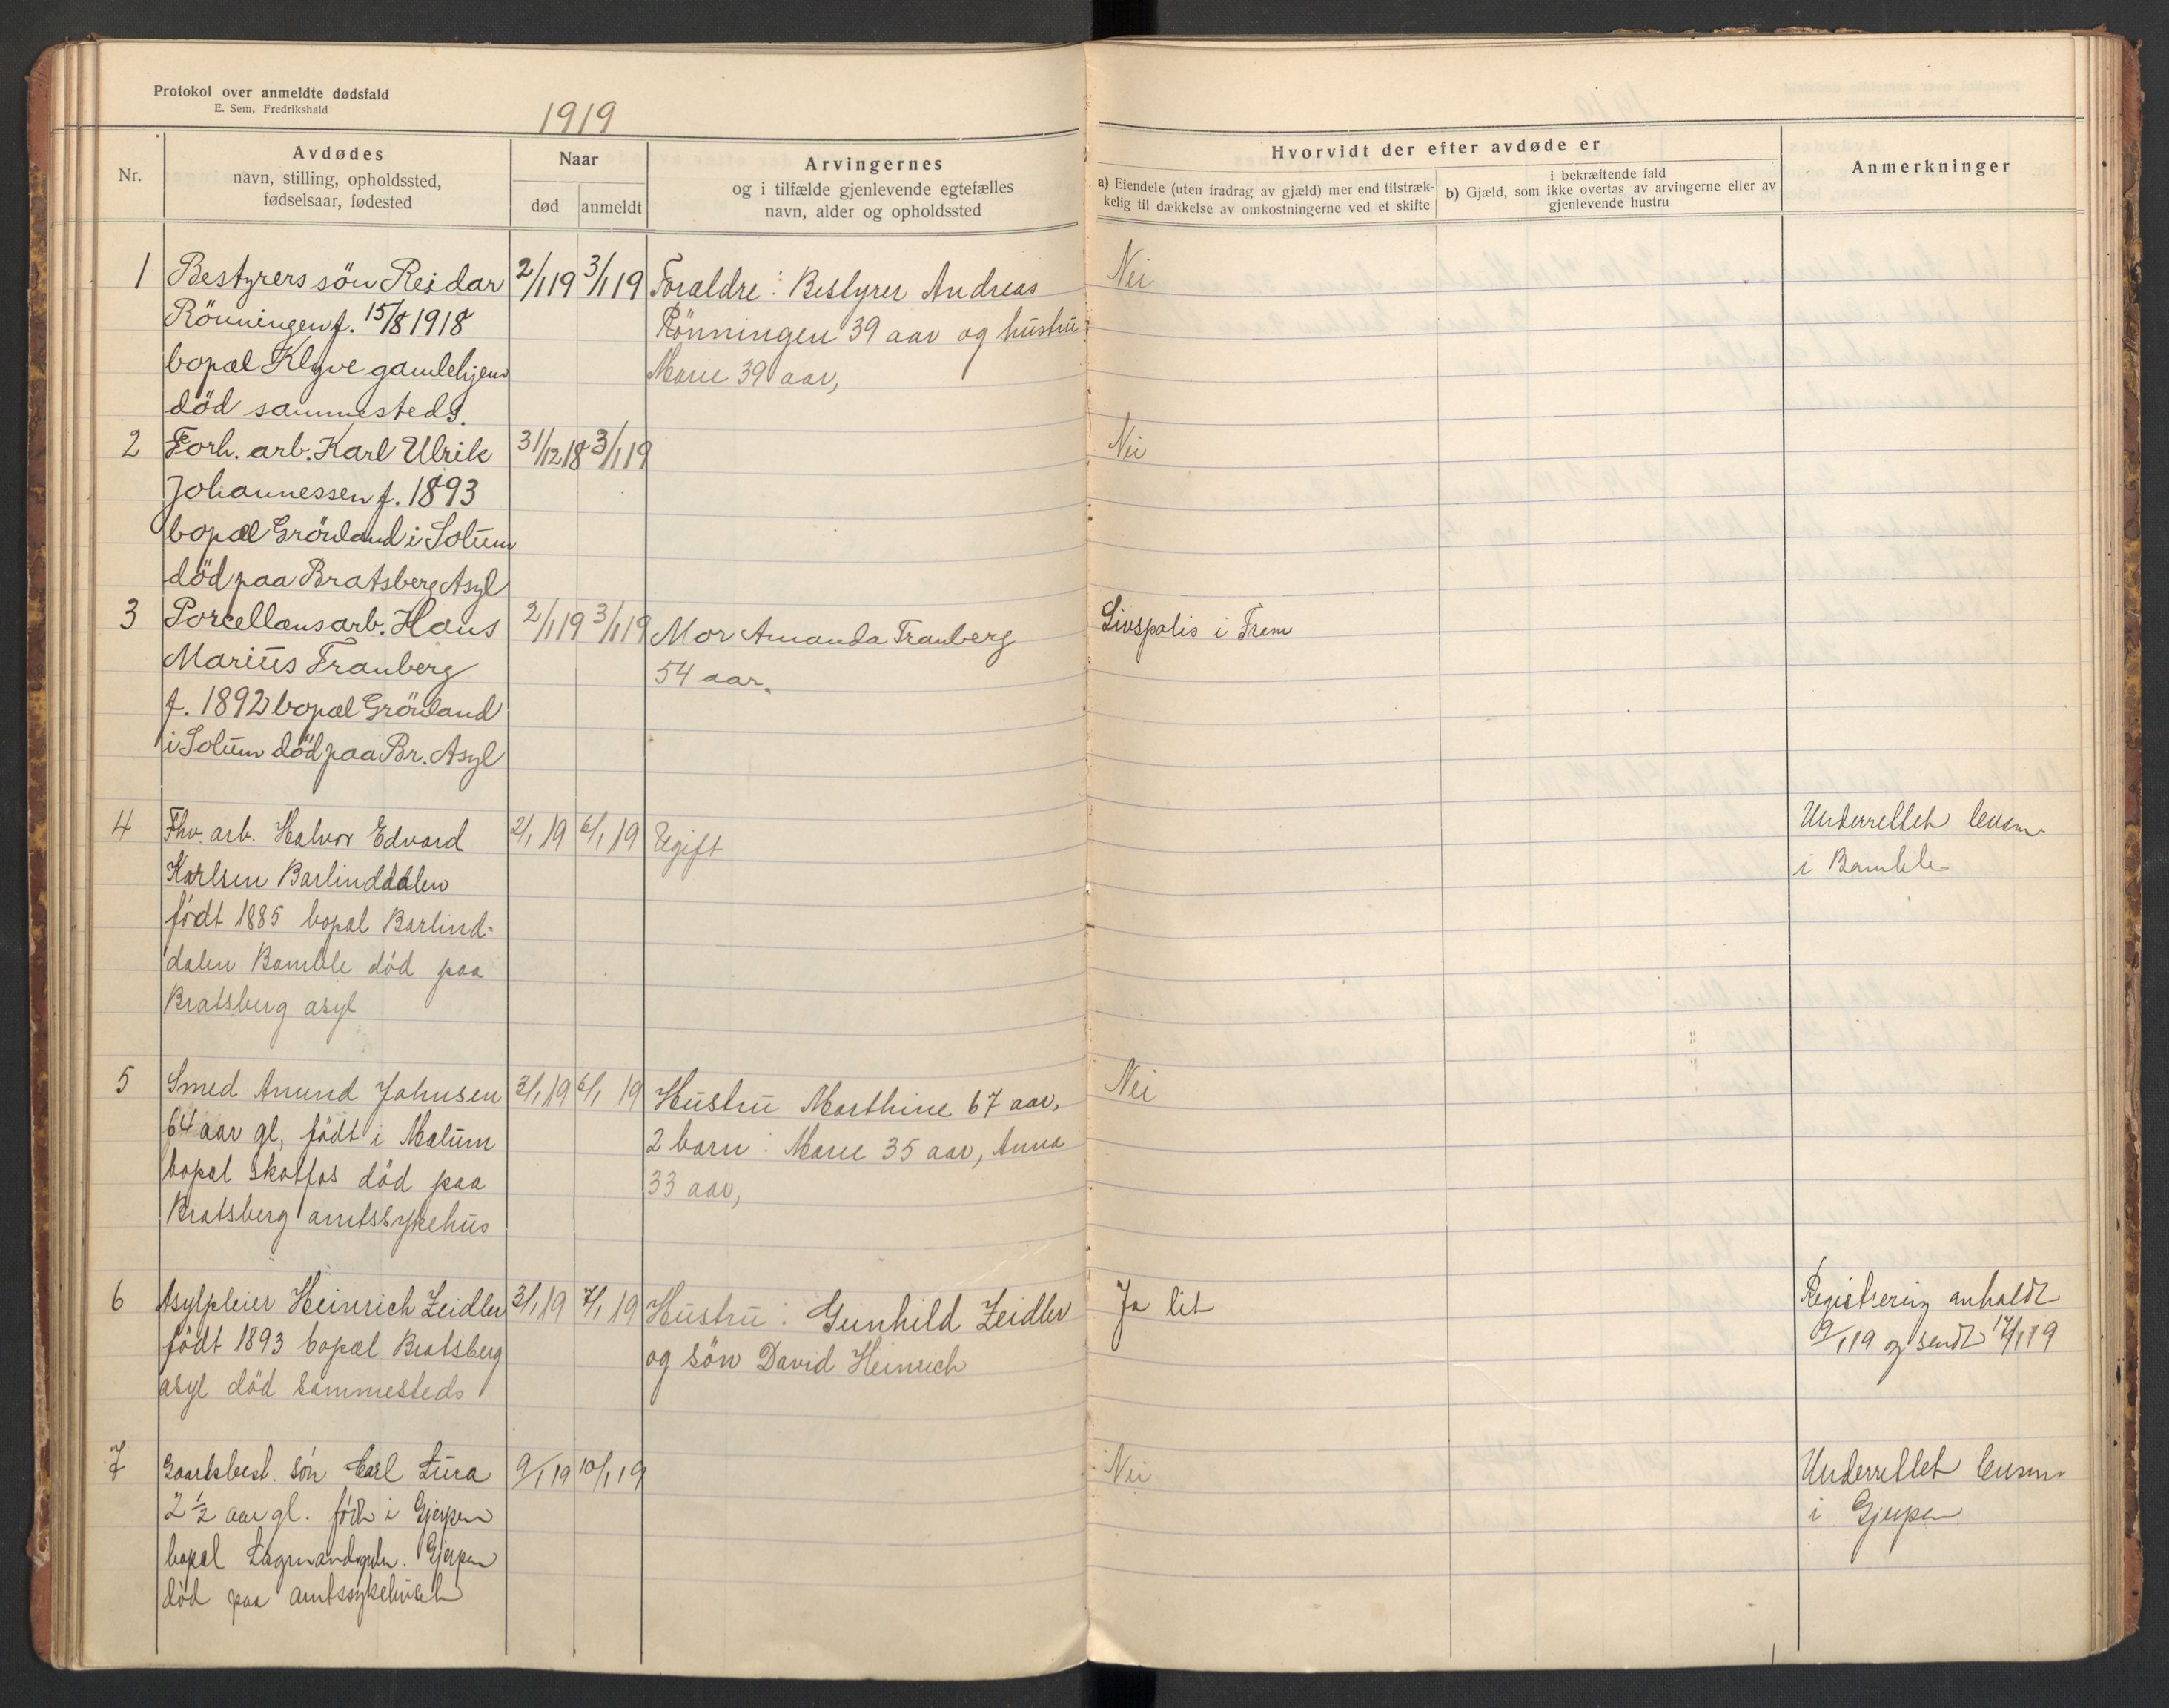 Protokol over anmeldte dødsfald
E. Sem, Fredrikshald
1919
Nr.
Avdødes
navn, stilling, opholdssted,
fødselsaar, fødested
Naar
død
anmeldt
Arvingernes
og i tilfælde gjenlevende egtefælles
navn, alder og opholdssted
Hvorvidt der efter avdøde er
a) Eiendele (uten fradrag av gjæld) mer end tilstræk-
kelig til dækkelse av omkostningerne ved et skifte
i bekræftende fald
b) Gjæld, som ikke overtas av arvingerne eller av
gjenlevende hustru
Anmerkninger
1 Bestyrers sön Reidar 2/1 19 3/1 19 Foraldre: Bestyrer Andreas Nei
Rönningen f. 15/8 1918 Rönningen 39 aar og hustru
bopæl Klyve gamlehjem Marie 39 aar,
död sammesteds.
2 Forh. arb. Karl Ulrik 31/12 18 3/1 19 Nei
Johannessen f. 1893
bopæl Grönland i Solum
död paa Bratsberg Asyl
3 Porcellansarb. Hans 2/1 19 3/1 19 Mor Amanda Tranberg Livspolis i Fram
Marius Tranberg 54 aar.
f. 1892 bopæl Grönland
i Solum död paa Br. Asyl
4 Fhv. arb. Halvor Edvard 2/1 19 6/1 19 Ugift Underrettet lensm.
Karlsen Barlinddalen i Bamble
födt 1885 bopæl Barlind-
dalen Bamble död paa
Bratsberg asyl
5 Smed Anund Johnsen 3/1 19 6/1 19 Hustru Marthine 67 aar, Nei
64 aar gl, födt i Melum 2 barn: Marie 35 aar, Anna
bopæl Skotfos död paa 33 aar,
Bratsberg amtssykehus
6 Asylpleier Heinrich Zeidler 3/1 19 7/1 19 Hustru: Gunhild Zeidler Ja lit Registrering anholdt
födt 1893 bopæl Bratsberg og sön David Heinrich 9/1 19 og sendt 17/1 19
asyl död sammesteds
7 Gaardbest. sön Carl Lura 9/1 19 10/1 19 Nei Underrettet lensm.
2 1/2 aar gl. födt i Gjerpen i Gjerpen
bopæl Gjerpen
död paa amtssykehuset